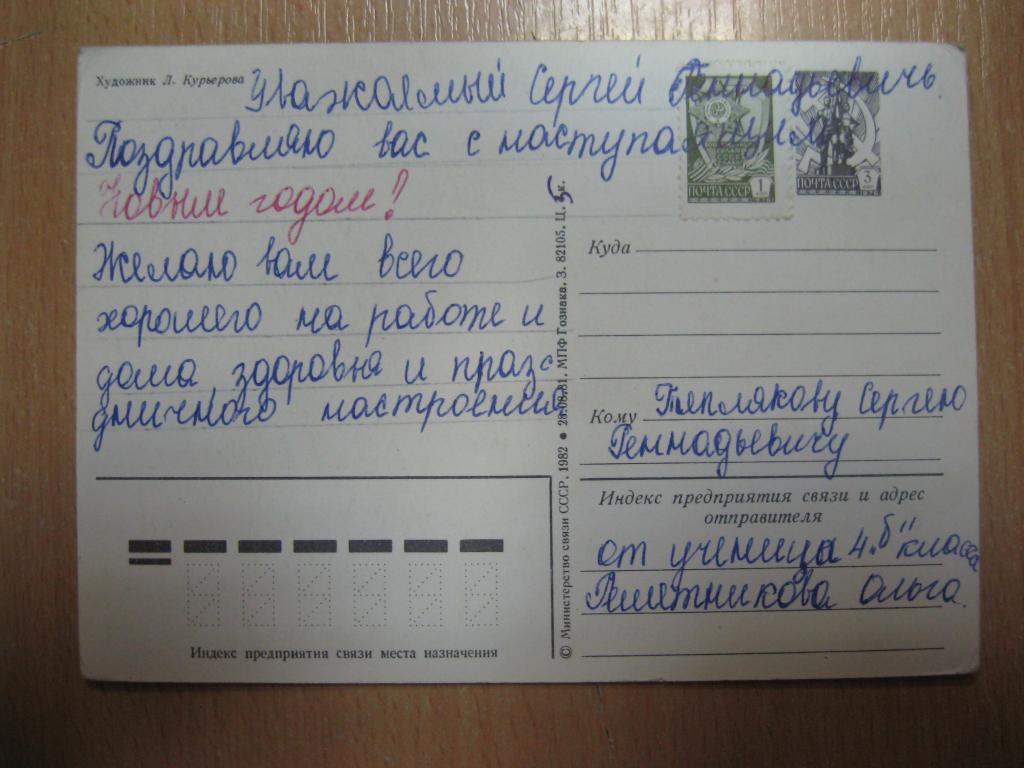 Художник Л. Курьерова
Уважаемый Сергей Геннадьевичь.
Поздравляю вас с наступающим
Новым годом!
Желаю вам всего
хорошего на работе и
дома, здоровья и празд
дничного настроения
Индекс предприятия связи места назначения
© Министерство связи СССР, 1982 • 28.08.81. МПФ Гознака. З. 82105. Ц. 5 к.
ПОЧТА СССР 1
ПОЧТА СССР 3
Куда
Кому Теплякову Сергею
Геннадьевичу
Индекс предприятия связи и адрес
отправителя
от ученица 4 „б" класса
Решетникова Ольга.